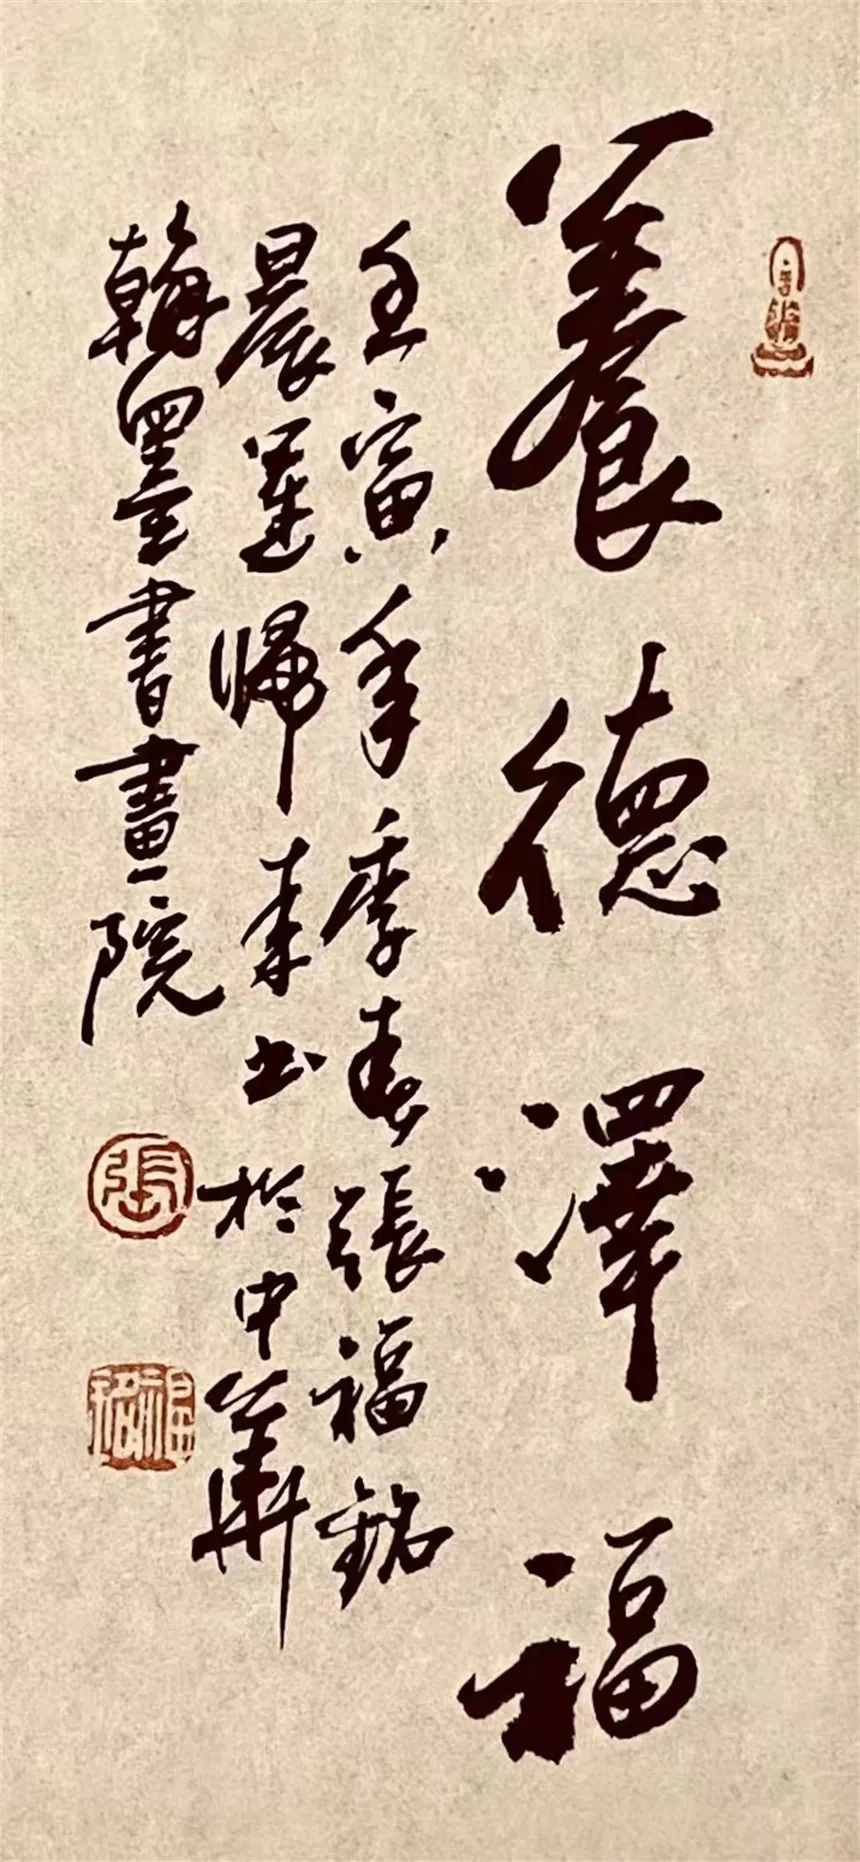 養德澤福
壬寅年季春張福銘
晨運歸來书於中華
翰墨書畫院
張